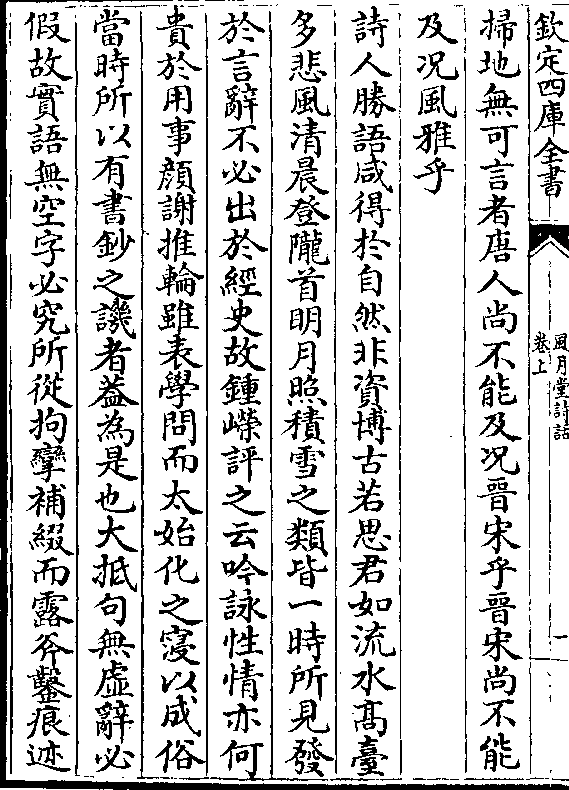 欽定四庫全書
風月堂詩話
卷上
一
掃地無可言者唐人尚不能及况晉宋乎晉宋尚不能
及况風雅乎
詩人勝語咸得於自然非資博古若思君如流水髙臺
多悲風清晨登隴首明月照積雪之類皆一時所見發
於言辭不必出於經史故鍾嶸評之云吟詠性情亦何
貴於用事顔謝推輪雖表學問而太始化之寖以成俗
當時所以有書鈔之譏者葢為是也大抵句無虛辭必
假故實語無空字必究所從拘攣補綴而露斧鑿痕迹